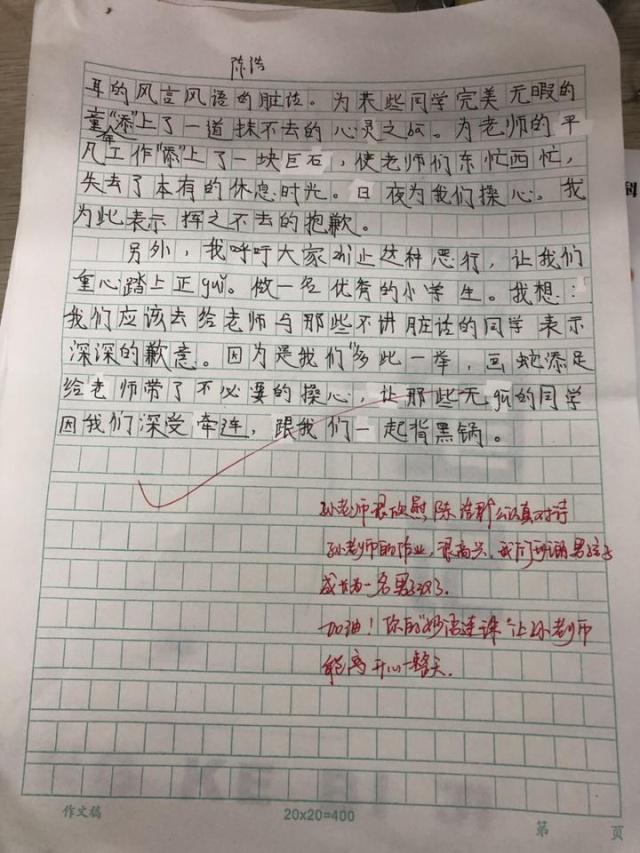 陈浩
耳的风言风语的脏话。为某些同学完美无暇的
童年“添”上了一道抹不去的心灵之
为老师的平
凡工作“添”上了一块巨石，使老师们东忙西忙，
失去了本有的休息时光。日夜为我们操心。我
为此表示挥之不去的抱歉。
另外，我呼吁大家制止这种恶行，让我们
重心踏上正guǐ。做一名优秀的小学生。我想：
我们应该去给老师与那些不讲脏话的同学表示
深深的歉意。因为是我们“多此一举，画蛇添足
给老师带了不必要的操心，让那些无gū的同学
因我们深受牵连，跟我们一起背黑锅。
孙老师很欣慰，陈浩能认真对待
孙老师的作业，很高兴，我们班的男孩
成长为一名男子汉了。
加油！你的“妙语连珠”让孙老师
能高兴一整天。
作文稿
20×20=400
第
页